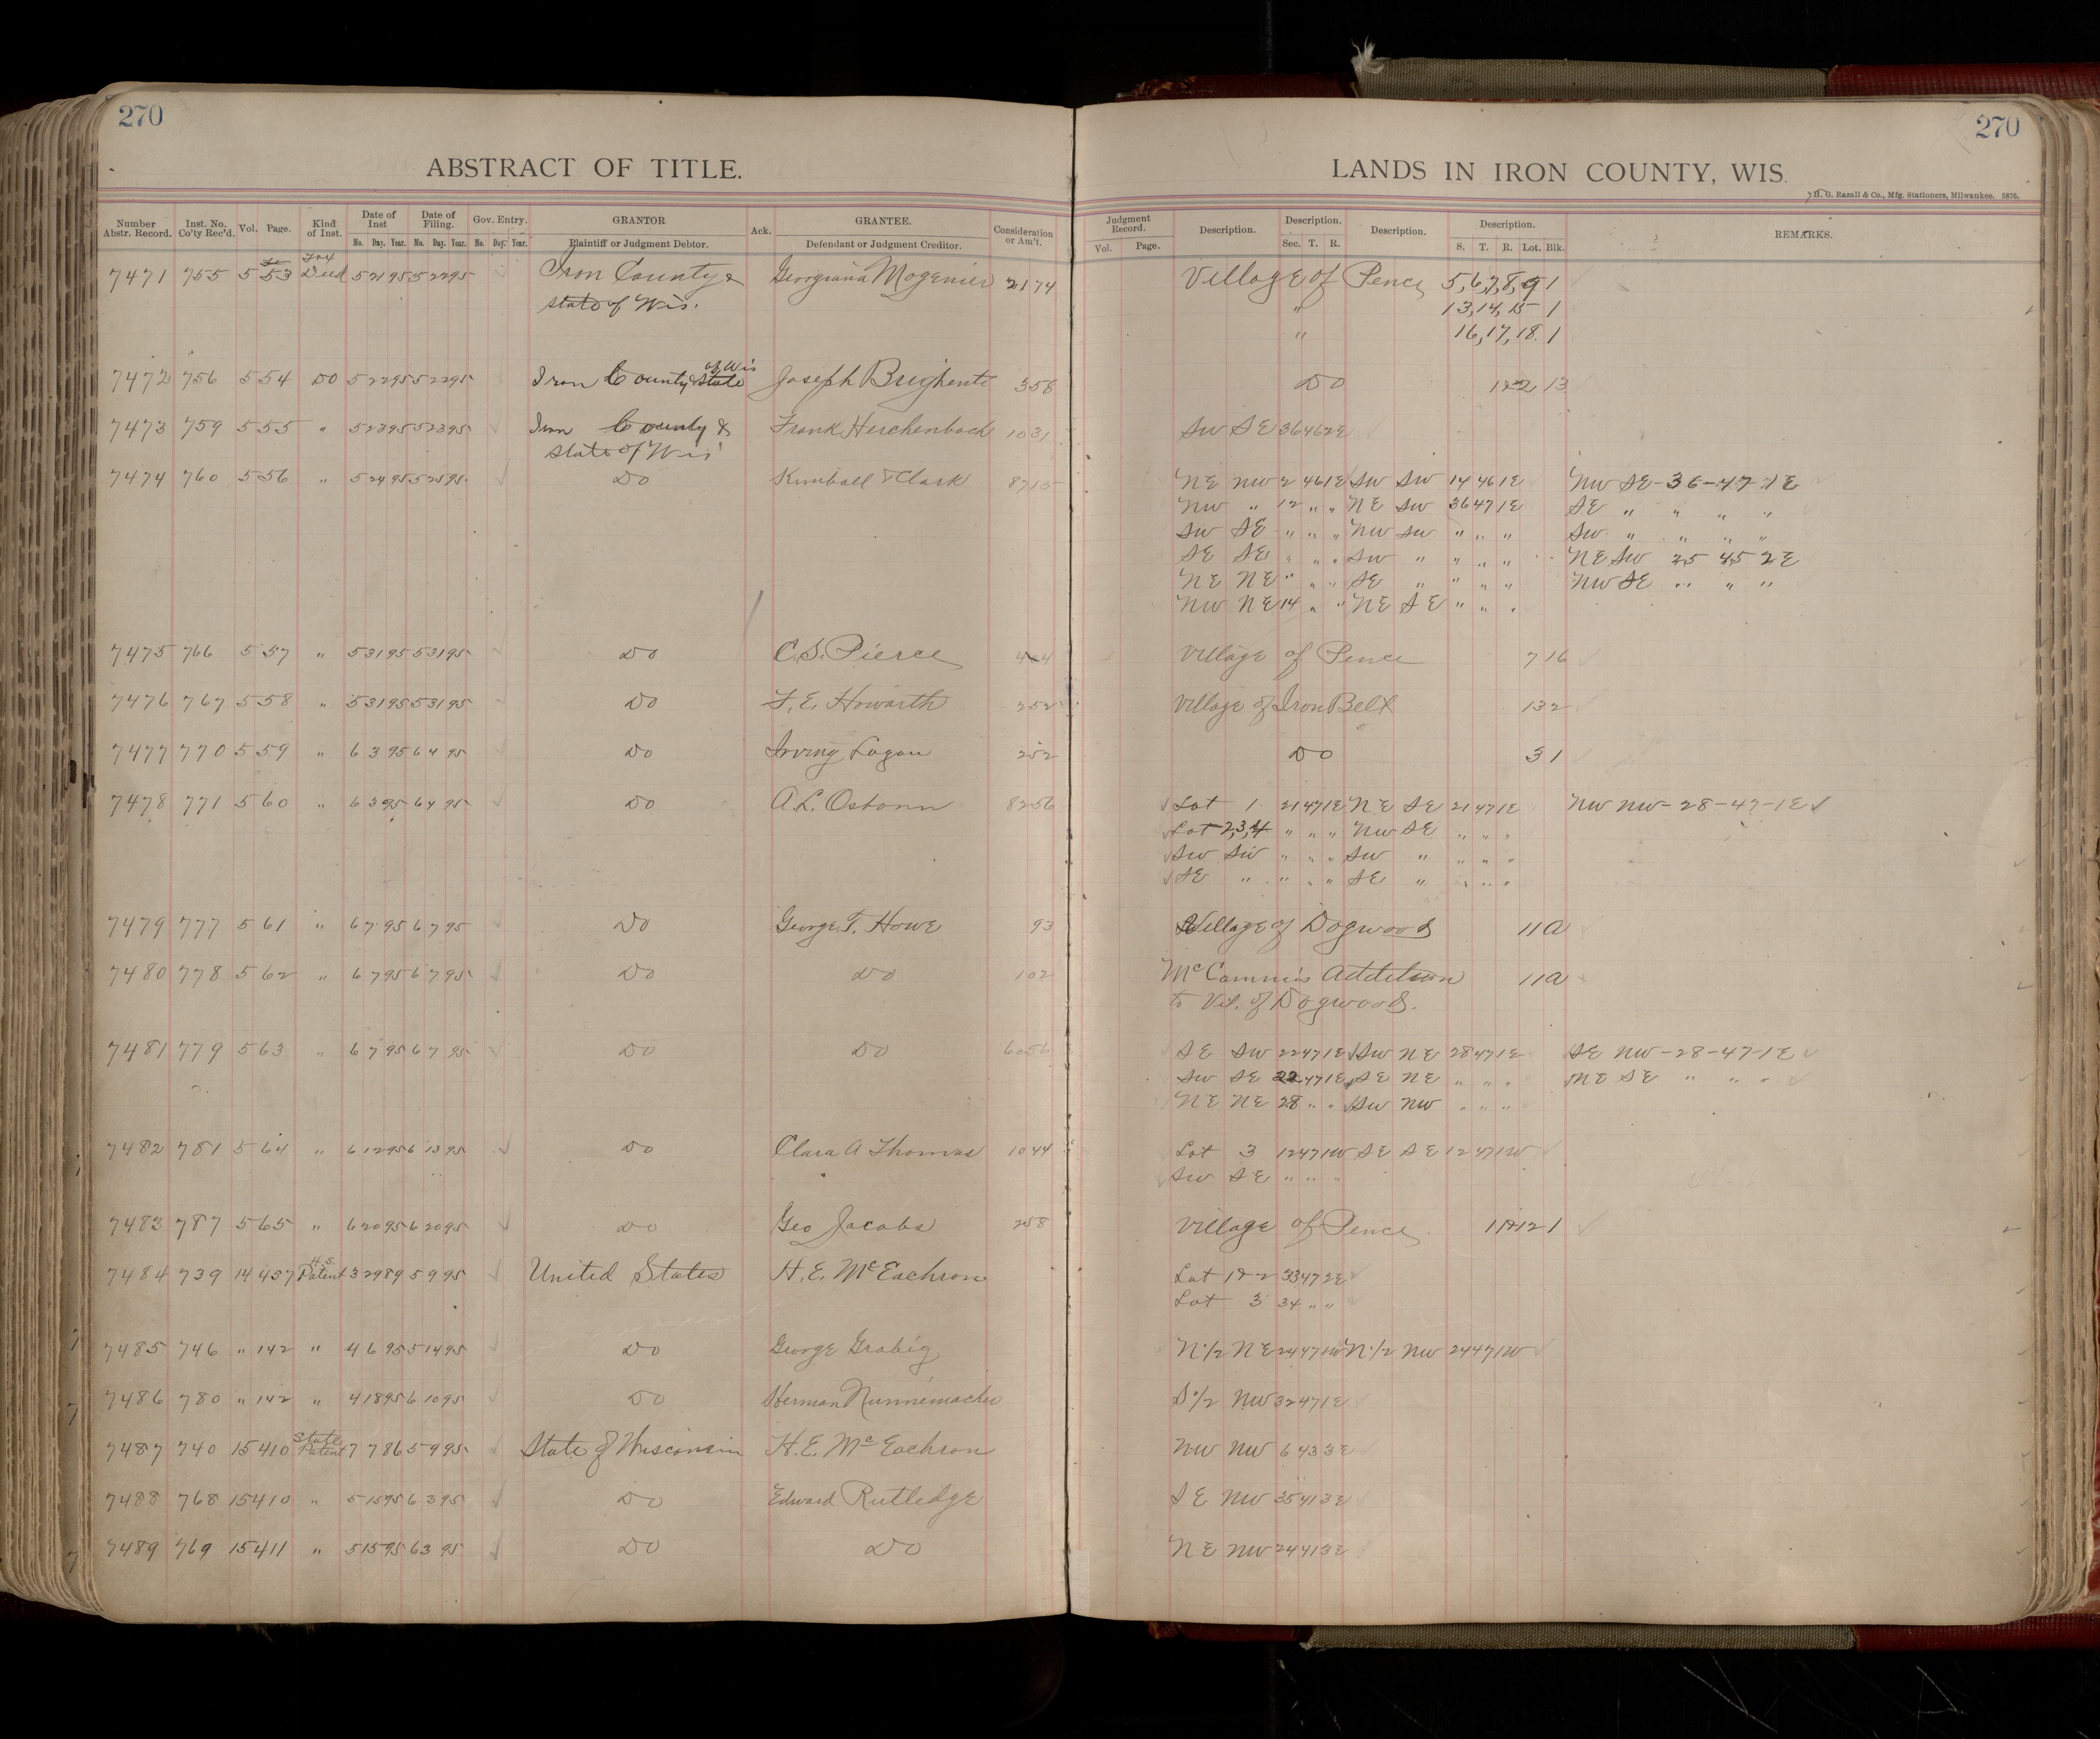 270
270
ABSTRACT OF TITLE.
LANDS IN IRON COUNTY, WIS.
H. G. Razall & Co., Mfg. Stationers, Milwaukee. 5876.
Number Abstr. Record. Inst. No. Co'ty Rec'd. Vol. Page. Kind of Inst. Date of Inst Mo. Day. Year. Date of Filing. Mo. Day. Year. Gov. Entry. Mo. Day. Year. GRANTOR Plaintiff or Judgment Debtor. Ack. GRANTEE. Defendant or Judgment Creditor. Consideration or Am't. Judgment Record. Vol. Page. Description. Description. Sec. T. R. Description. Description. S. T. R. Lot. Blk. REMARKS.
7471 755 5 53 Tax Deed 5 21 95 5 22 95 Iron County & Georgiana Mogenier 21 74 Village of Pence 5,6,7,8,9 1
State of Wis. " 13,14,15 1
" 16,17,18 1
7472 756 5 54 Do 5 22 95 5 22 95 Iron County & State of Wis Joseph Brighente 3 58 Do 1&2 13
7473 759 5 55 " 5 23 95 5 23 95 Iron County & Frank Herchenbach 10 31 SW SE 36 46 2E
State of Wis
7474 760 5 56 " 5 24 95 5 25 95 Do Kimball & Clark 87 15 NE NW 2 46 1E SW SW 14 46 1E NW SE-36-47-1E
NW " 12 " " NE SW 36 47 1E SE " " " "
SW SE " " " NW SW " " " SW " " " "
SE SE " " " SW " " " " NE SW 25 45 2E
NE NE " " " SE " " " " NW SE " " "
NW NE 14 " " NE SE " " "
7475 766 5 57 " 5 31 95 5 31 95 Do C.S. Pierce 4 04 Village of Pence 7 16
7476 767 5 58 " 5 31 95 5 31 95 Do F. E. Howarth 2 52 Village of Iron Belt 13 2
7477 770 5 59 " 6 3 95 6 4 95 Do Irving Logan 2 52 Do 3 1
7478 771 5 60 " 6 3 95 6 4 95 Do A.L. Osborn 82 56 Lot 1 21 47 1E NE SE 21 47 1E NW NW-28-47-1E
Lot 2,3,4 " " " NW SE " " "
SW SW " " " SW " " " "
SE " " " " SE " " " "
7479 777 5 61 " 6 7 95 6 7 95 Do George T. Howe 93 Village of Dogwood 11 a
7480 778 5 62 " 6 7 95 6 7 95 Do Do 1 02 McCammis Addition 11 a
to Vil. of Dogwood.
7481 779 5 63 " 6 7 95 6 7 95 Do Do 60 56 SE SW 22 47 1E SW NE 28 47 1E SE NW-28-47-1E
SW SE 22 47 1E SE NE " " " NE SE " " "
NE NE 28 " " SW NW " " "
7482 781 5 64 " 6 12 95 6 13 95 Do Clara A Thomas 10 44 Lot 3 12 47 1W SE SE 12 47 1W
SW SE " " "
7483 787 5 65 " 6 20 95 6 20 95 Do Geo Jacobs 2 58 Village of Pence 11&12 1
7484 739 14 457 H.S. Patent 3 29 89 5 9 95 United States H. E. McEachron Lot 1&2 33 47 2E
Lot 3 34 " "
7485 746 " 142 " 4 6 95 5 14 95 Do George Grabig N 1/2 NE 24 47 1W N 1/2 NW 24 47 1W
7486 780 " 142 " 4 18 95 6 10 95 Do Herman Nunnemacher S 1/2 NW 32 47 1E
7487 740 15 410 State Patent 7 7 86 5 9 95 State of Wisconsin H. E. McEachron NW NW 6 43 3E
7488 768 15 410 " 5 15 95 6 3 95 Do Edward Rutledge SE NW 35 41 3E
7489 769 15 411 " 5 15 95 6 3 95 Do Do NE NW 24 41 3E